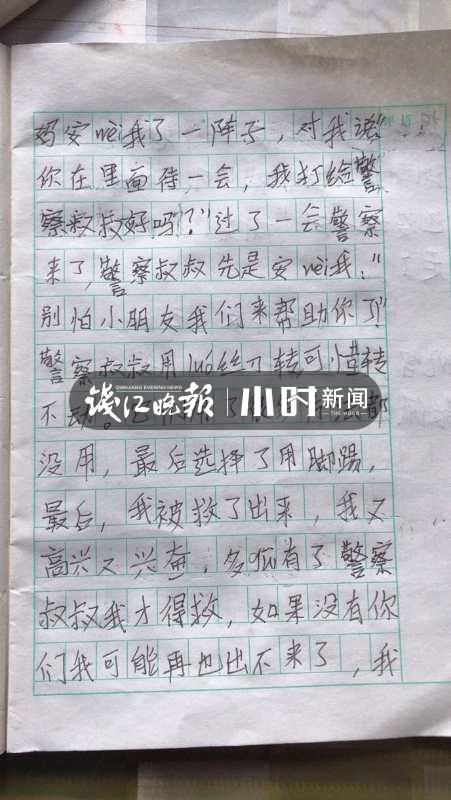 妈安wèi我了一阵子，对我说“：
你在里面待一会，我打给警
察叔叔好吗？”过了一会警察
来了，警察叔叔先是安wèi我：“
别怕小朋友我们来帮助你了”
警察叔叔用luó丝刀转可惜转
不动。
钱江晚报 小时新闻
QIANJIANG EVENING NEWS THE HOUR
没用，最后选择了用脚踢，
最后，我被救了出来，我又
高兴又兴奋，多亏有了警察
叔叔我才得救，如果没有你
们我可能再也出不来了，我